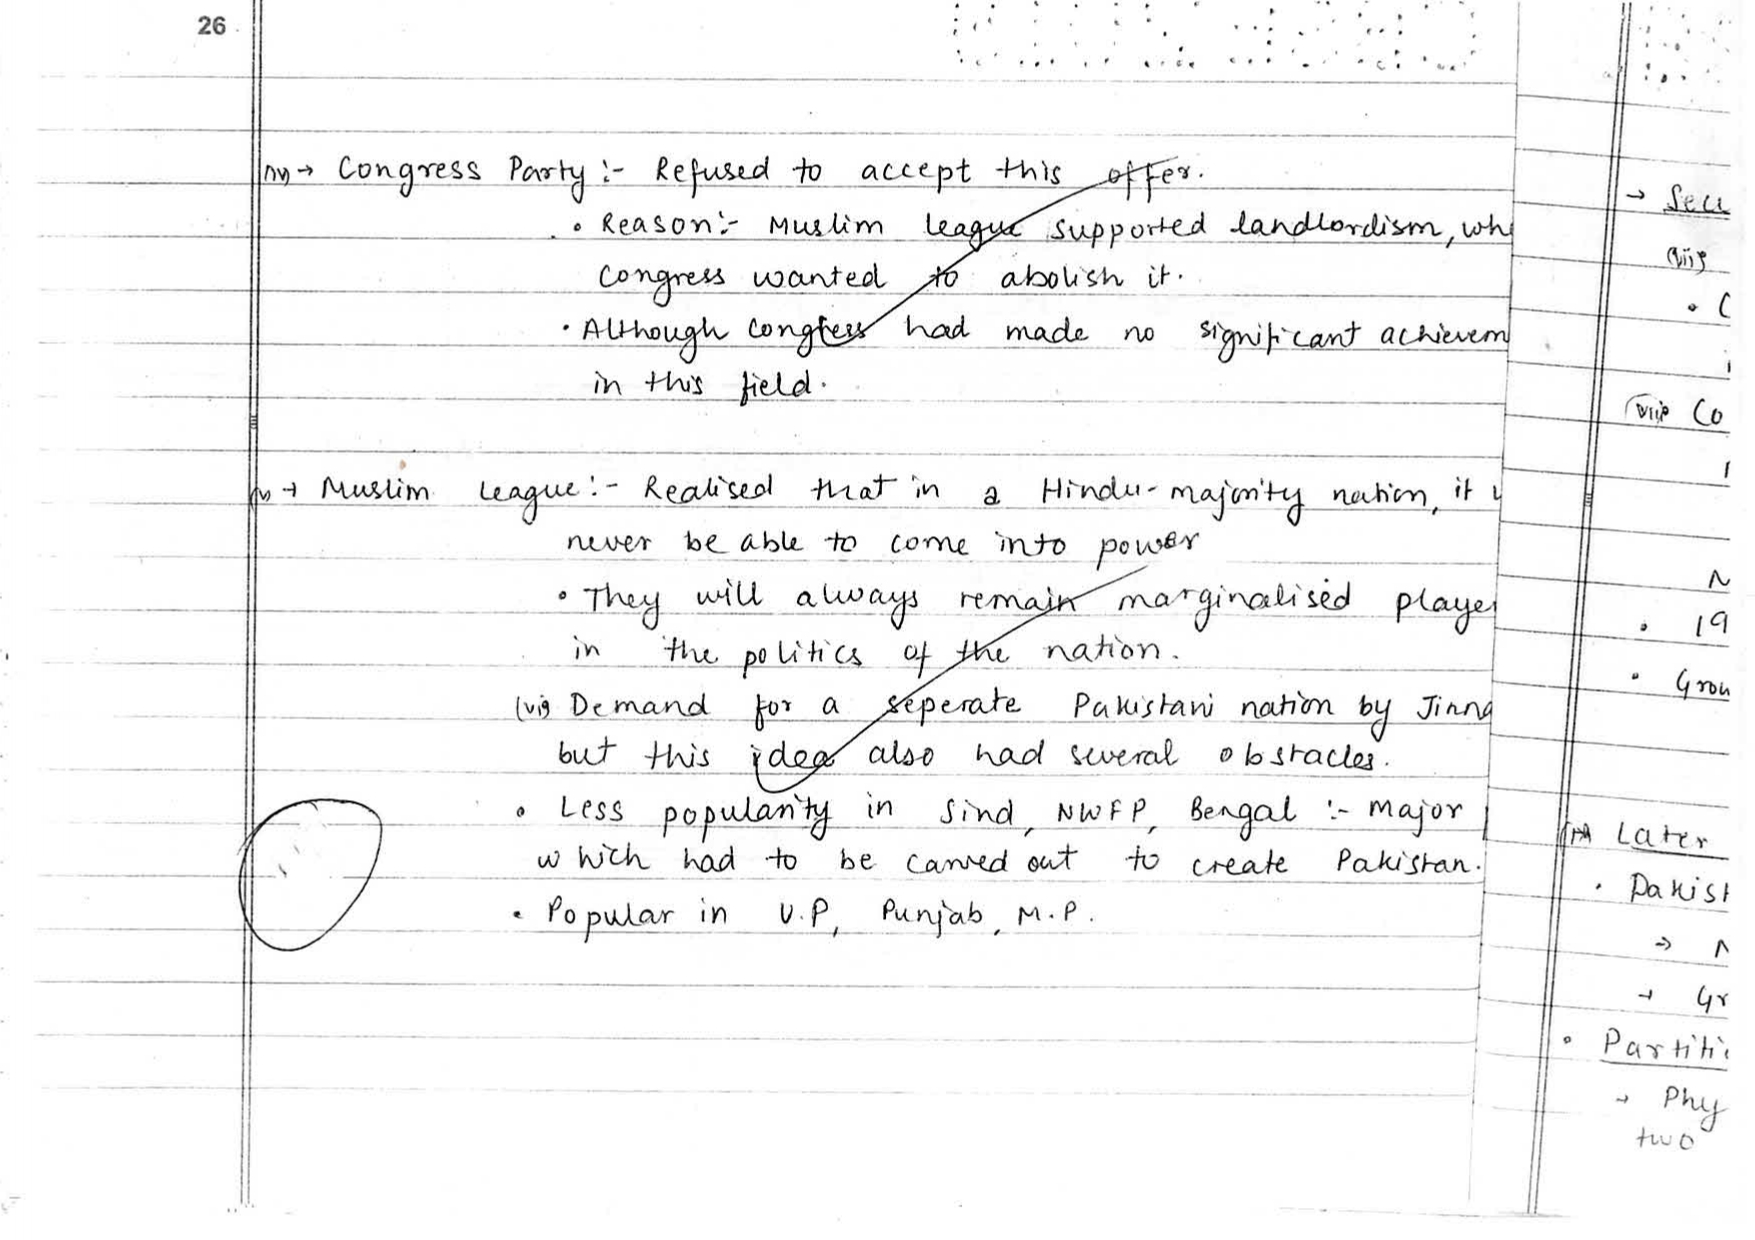 26
(iv) → Congress Party :- Refused to accept this offer.
• Reason :- Muslim league supported landlordism, wh
Congress wanted to abolish it.
• Although Congress had made no significant achievem
in this field.
(v) → Muslim League :- Realised that in a Hindu-majority nation, it
never be able to come into power
• They will always remain marginalised playe
in the politics of the nation.
(vi) Demand for a seperate Pakistani nation by Jinna
but this idea also had several obstacles.
• Less popularity in Sind, NWFP, Bengal :- Major
which had to be carved out to create Pakistan.
• Popular in U.P, Punjab, M.P.
→ Secu
(vii)
• C
(viii) Co
N
• 19
• Grou
Later
• Pakist
→ N
→ Gr
• Partiti
→ Phy
two